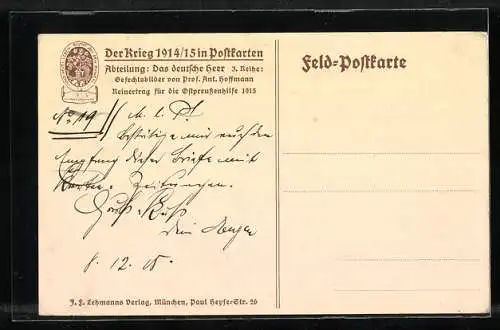 Der Krieg 1914/15 in Postkarten
Abteilung: Das deutsche Heer 3. Reihe:
Gefechtsbilder von Prof. Ant. Hoffmann
Reinertrag für die Ostpreußenhilfe 1915
Feld-Postkarte
No. 19
M. l. P!
bestätige mir auch den
Empfang dieser Briefe mit
Karten. Zeitungen.
Gruß + Kuß
dein
8. 12. 15.
J. F. Lehmanns Verlag, München, Paul Heyse-Str. 26